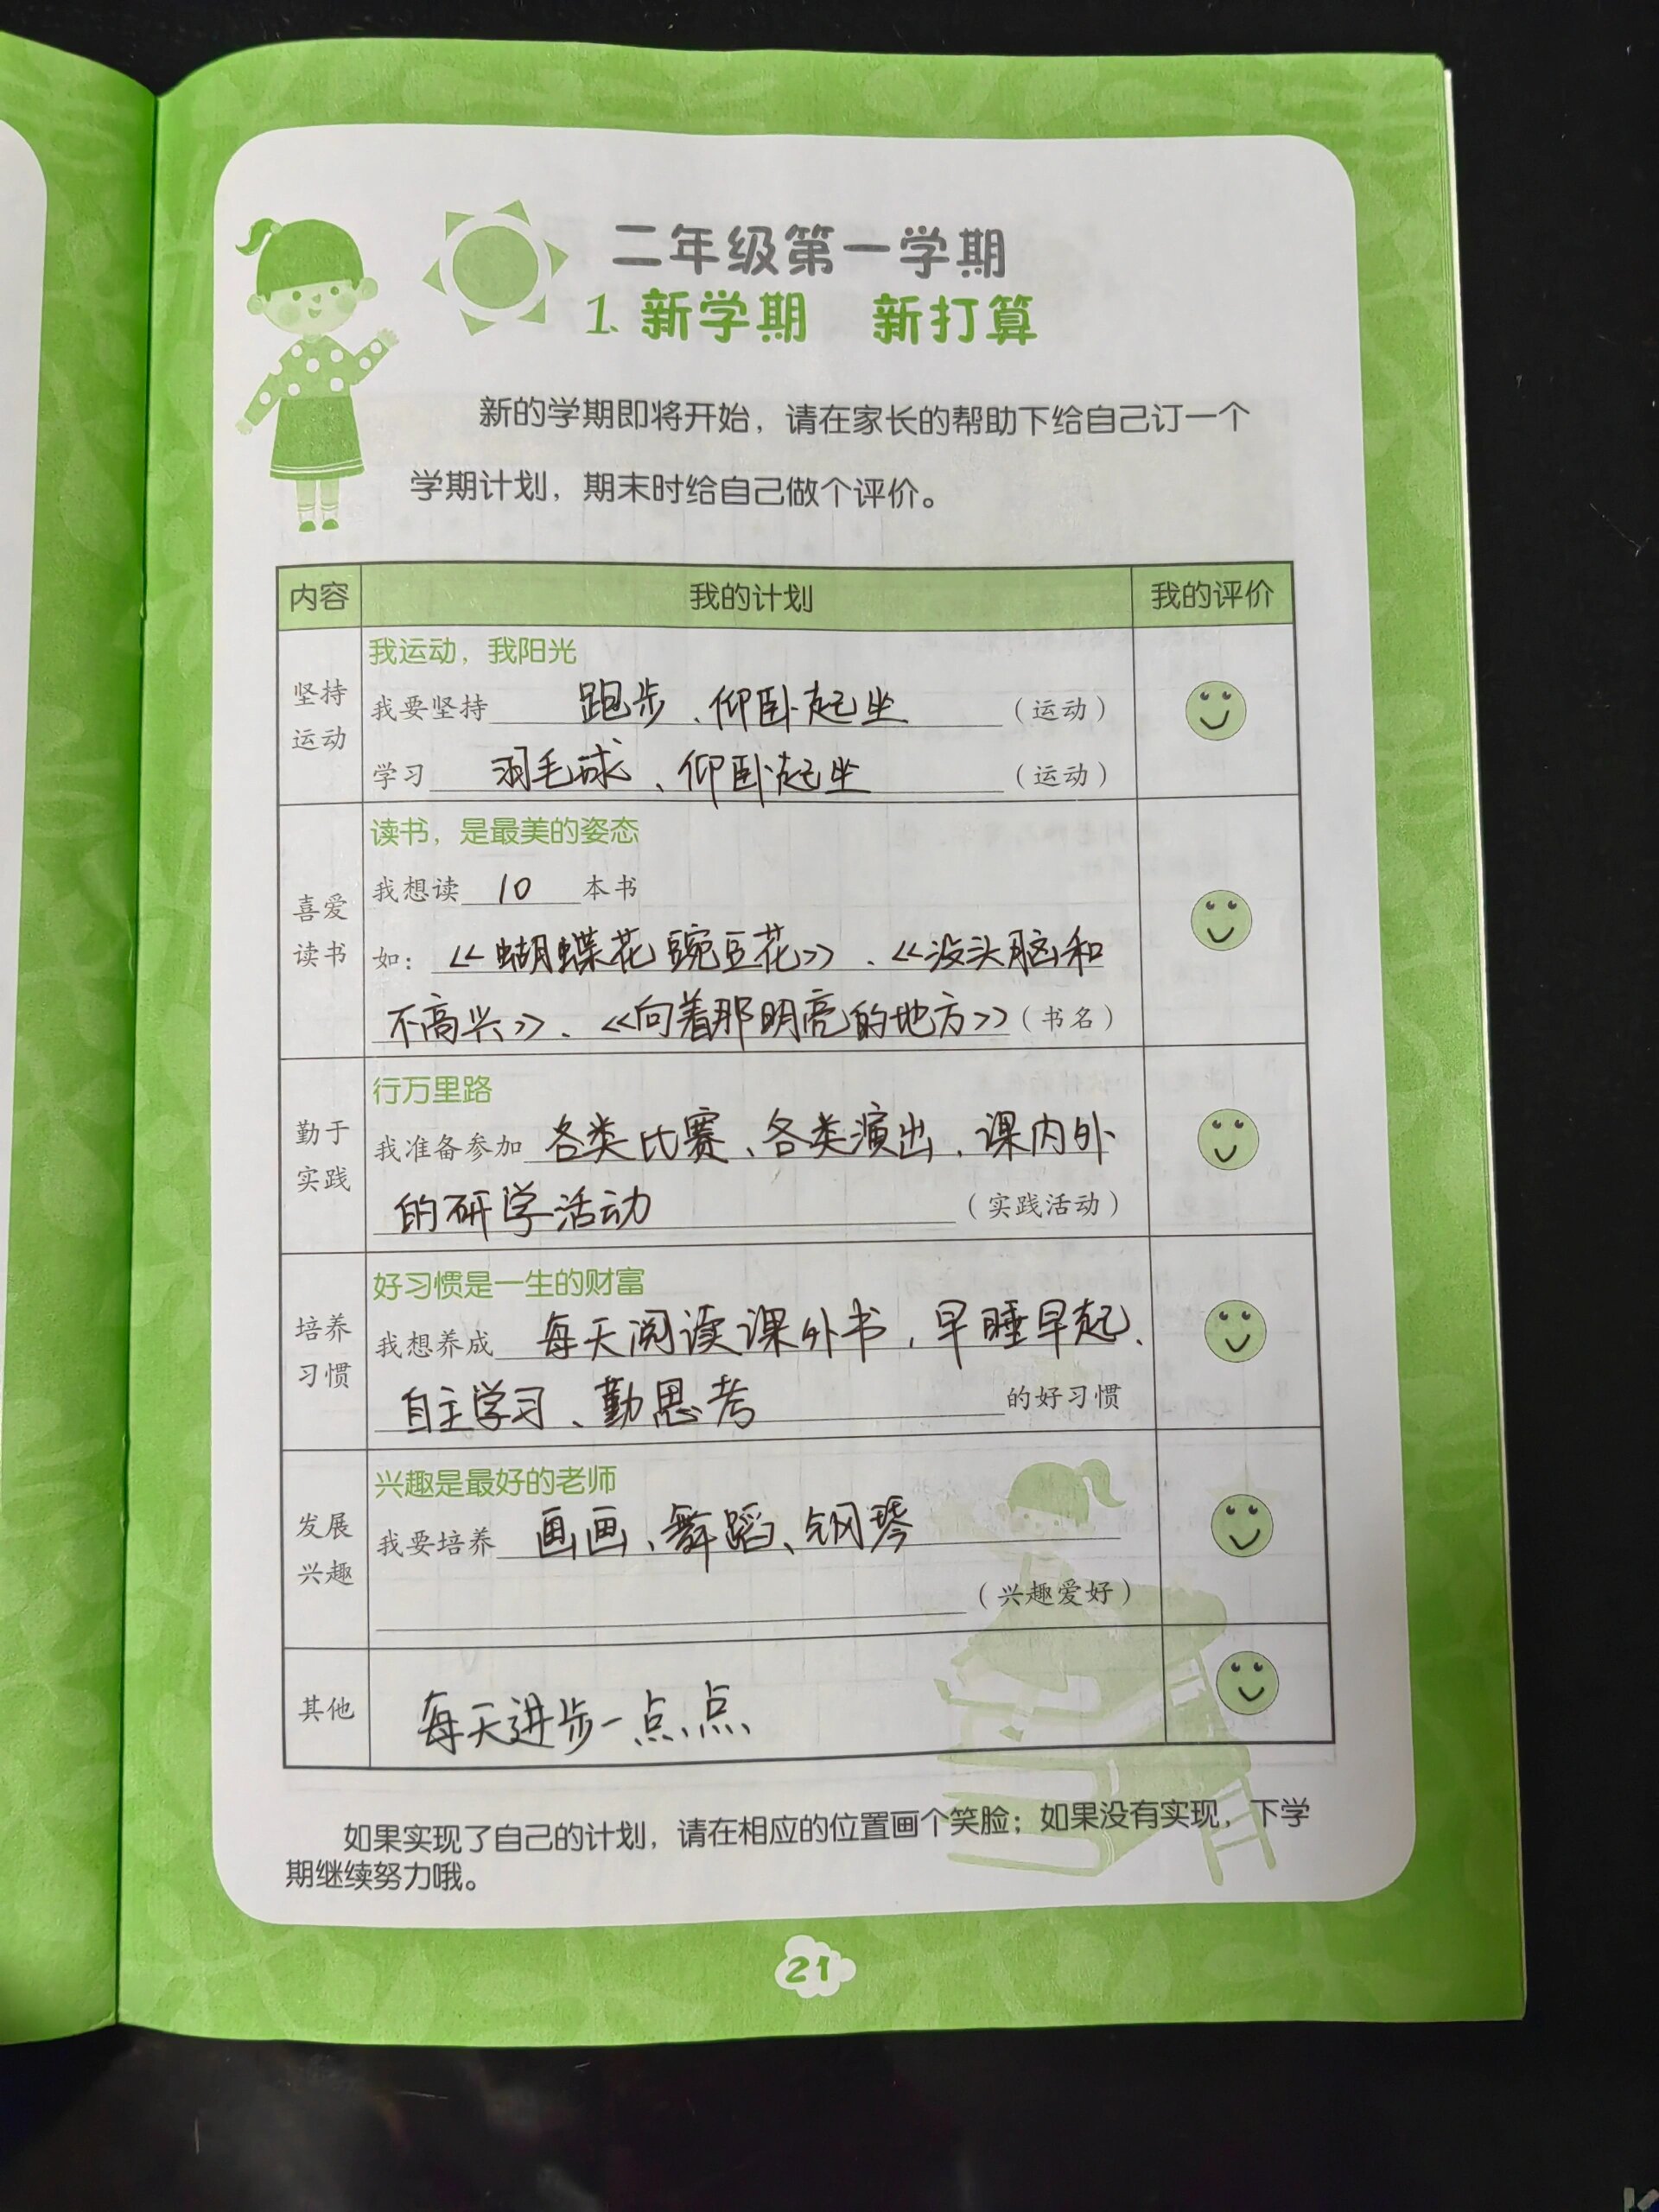 二年级第一学期
1. 新学期 新打算
新的学期即将开始，请在家长的帮助下给自己订一个
学期计划，期末时给自己做个评价。
内容 我的计划 我的评价
坚持
运动
我运动，我阳光
我要坚持 跑步、仰卧起坐 （运动）
学习 羽毛球、仰卧起坐 （运动）
喜爱
读书
读书，是最美的姿态
我想读 10 本书
如：《蝴蝶花豌豆花》、《没头脑和
不高兴》、《向着那明亮的地方》（书名）
勤于
实践
行万里路
我准备参加 各类比赛、各类演出、课内外
的研学活动 （实践活动）
培养
习惯
好习惯是一生的财富
我想养成 每天阅读课外书，早睡早起、
自主学习、勤思考 的好习惯
发展
兴趣
兴趣是最好的老师
我要培养 画画、舞蹈、钢琴
（兴趣爱好）
其他
每天进步一点点
如果实现了自己的计划，请在相应的位置画个笑脸；如果没有实现，下学
期继续努力哦。
21